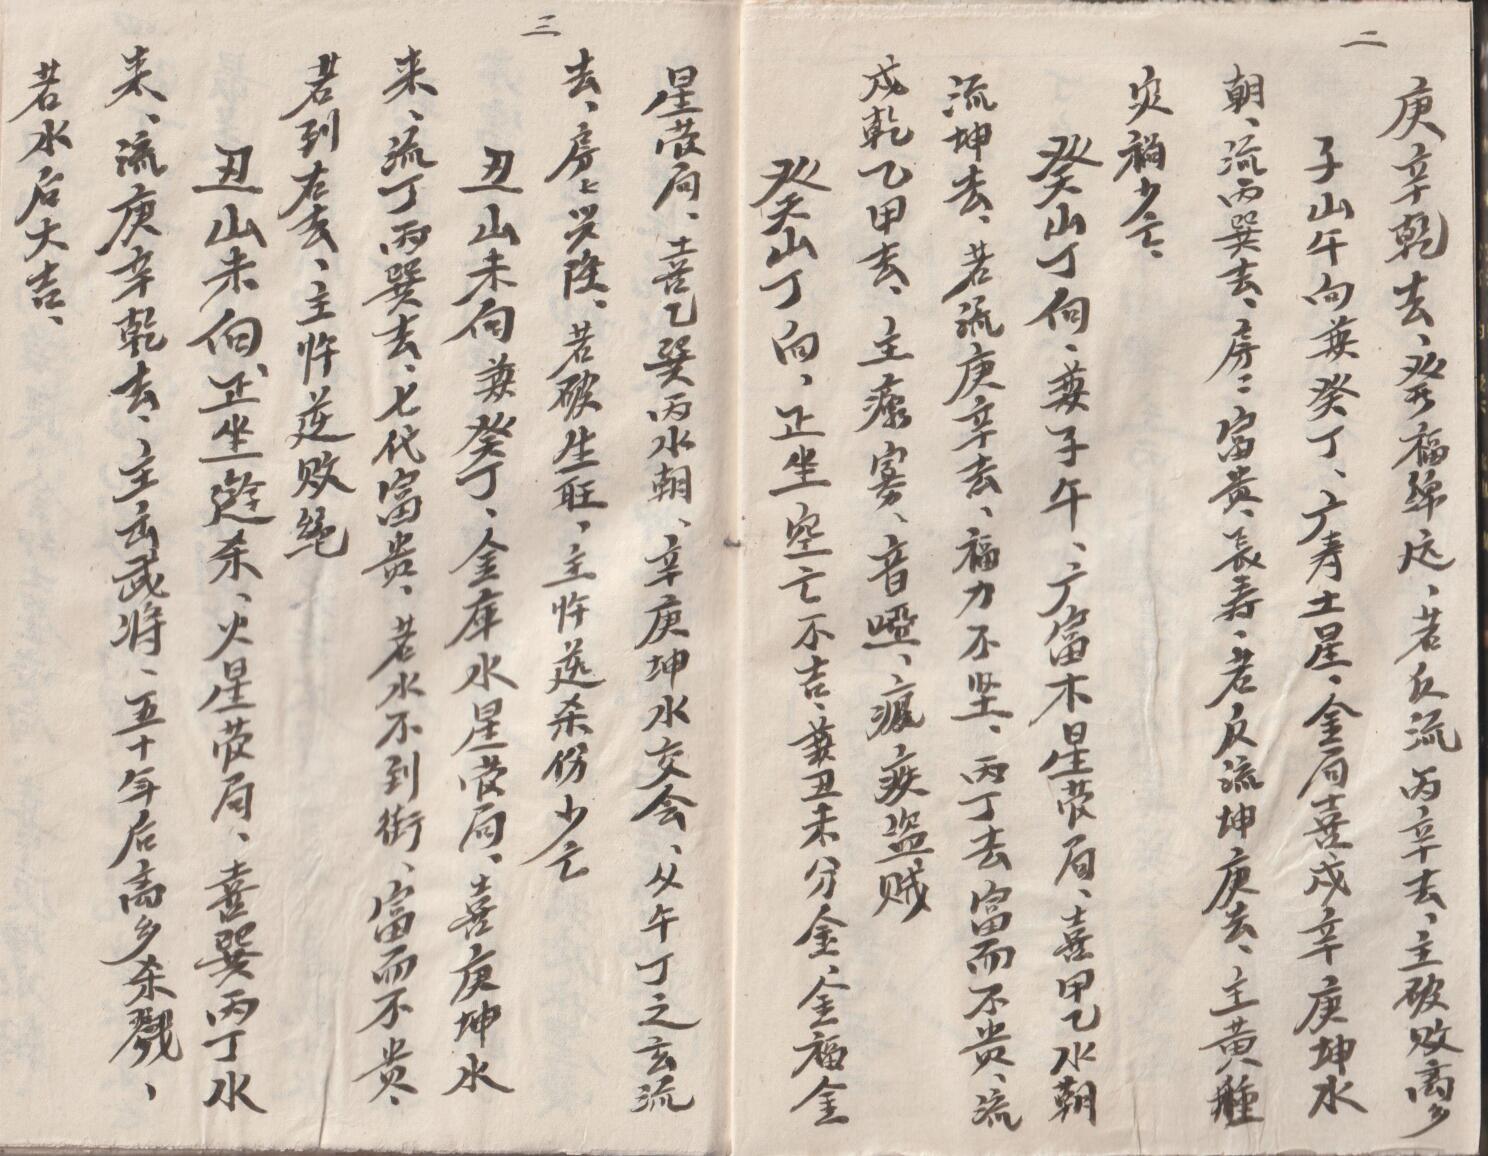 二
庚辛乾去、癸福绵远、若反流丙辛去、主破败离乡
子山午向兼癸丁、广寿土星、金局喜戌辛庚坤水
朝、流丙巽去、房々富贵、長寿、若反流坤庚去、主黄肿
灾祸少亡、
癸山丁向、兼子午、广富木星营局、喜甲乙水朝
流坤去、若流庚辛去、福力不坚、丙丁去富而不贵、流
戌乾乙甲去、主瘰寡、音哑、瘋疾盗贼
癸山丁向、正坐空亡不吉、兼丑未分金、金福金
三
星营局、喜乙巽丙水朝、辛庚坤水交会、从午丁之玄流
去、房々兴隆、若破生旺、主忤逆杀伤少亡
丑山未向兼癸丁、金库水星营局、喜庚坤水
来、流丁丙巽去、七代富贵、若水不到街、富而不贵、
若到右去、主忤逆败绝
丑山未向、正坐杀、火星营局、喜巽丙丁水
来、流庚辛乾去、主玄武将、五十年后离乡杀戮、
若水后大吉、